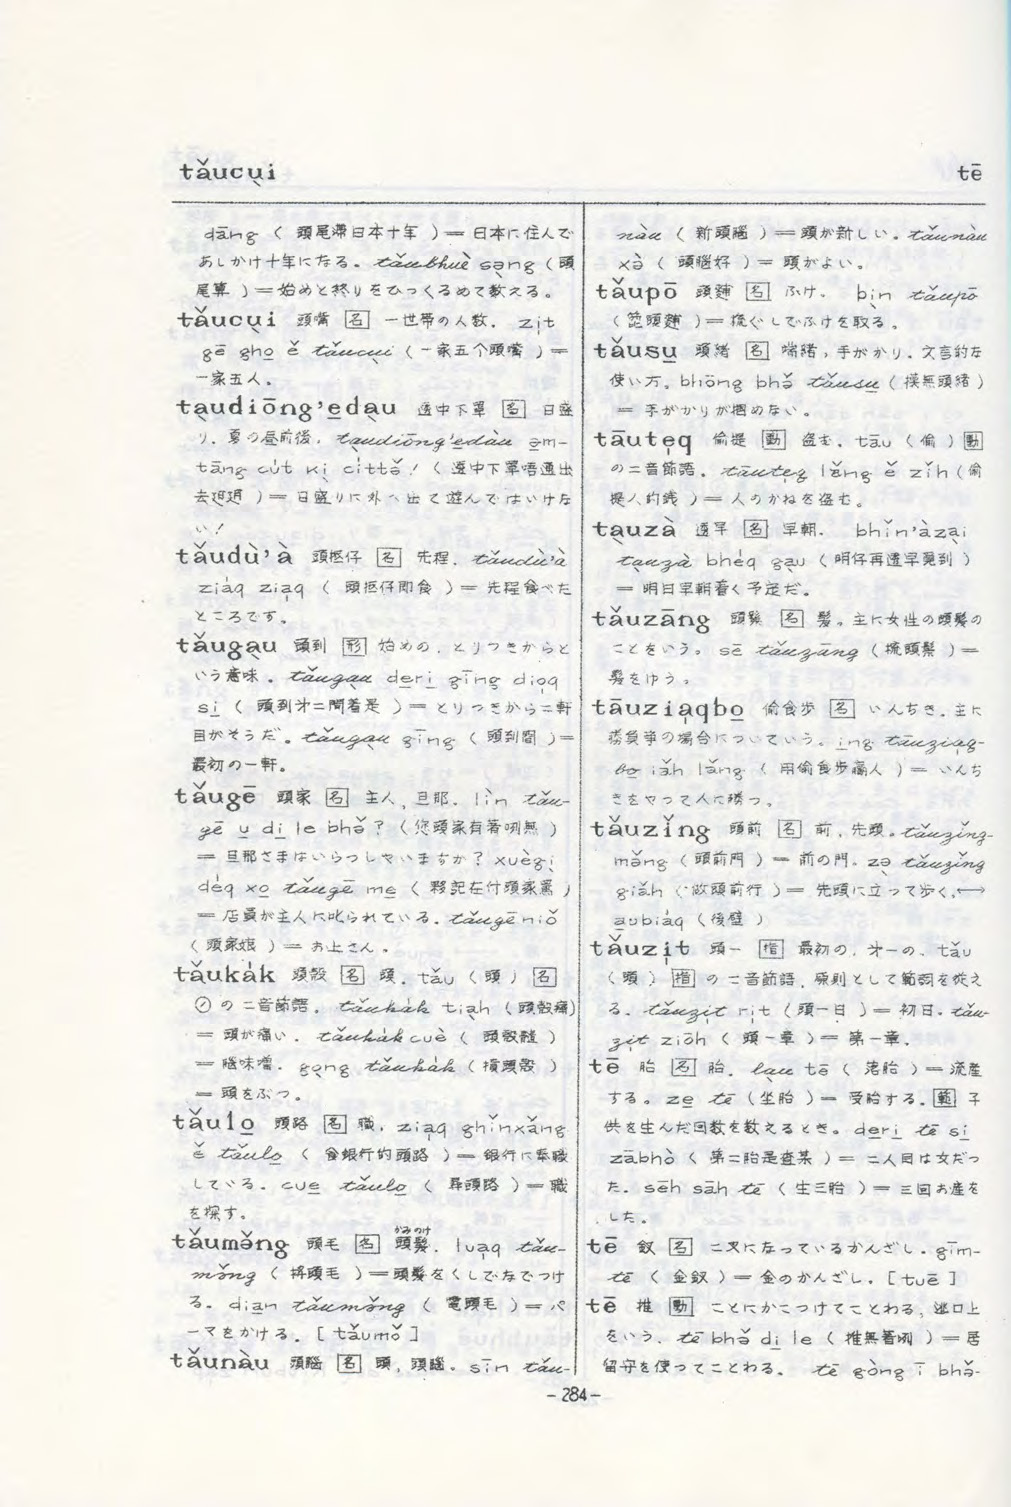 tǎucu̱i
tē
dāng ( 頭尾滯日本十年 )＝日本に住んで
あしかけ十年になる。tǎubhuè sə̣ng (頭
尾算 )＝始めと終りをひっくるめて教える。
tǎucụi 頭嘴 [名] 一世帯の人数. zịt
gē gho̱ ě tǎucụi ( 一家五个頭嘴 )＝
一家五人。
tạudiōng'e̱dạu 透中下罩 [名] 日盛
り. 夏の昼前後. tạudiōng'e̱dàu ə̱m-
tāng cút kị cíttə̌! ( 透中下罩唔通出
去𨑨迌 )＝日盛りに外へ出て遊んではいけな
い!
tǎudù'à 頭抵仔 [名] 先程. tǎudù'à
ziáq ziaq ( 頭抵仔即食 )＝先程食べた
ところです。
tǎugạu 頭到 [形] 始めの. とりつきからと
いう意味。tǎugạu deri̱ gīng dioq
si̱ ( 頭到才二間着是 )＝とりつきから二軒
目がそうだ。tǎugạu gīng ( 頭到間 )＝
最初の一軒。
tǎugē 頭家 [名] 主人, 旦那. lìn tǎu-
gē u̱ di̱ le bhə̌? (您頭家有著咧無 )
＝旦那さまはいらっしゃいますか? xuègị
déq xo̱ tǎugē mẹ ( 夥記在付頭家罵 )
＝店員が主人に叱られている. tǎugēniǒ
( 頭家娘 )＝お上さん.
tǎukák 頭殻 [名] 頭. tǎu ( 頭 ) [名]
① の二音節語. tǎukák tiạh ( 頭殻痛)
＝頭が痛い. tǎukákcuè ( 頭殻髄 )
＝脳味噌. gọng tǎukák ( 摃頭殻 )
＝頭をぶつ。
tǎulo̱ 頭路 [名] 職. ziaq ghǐnxǎng
ě tǎulo̱ ( 食銀行的頭路 )＝銀行に奉職
している. cue̱ tǎulo̱ ( 尋頭路 )＝職
を探す。
tǎumə̌ng 頭毛 [名] 頭髪(かみのけ). luaq tǎu-
mə̌ng ( 捋頭毛 )＝頭髪をくしでなでつけ
る. dian tǎumə̌ng ( 電頭毛 )＝パ
ーマをかける. [ tǎumǒ ]
tǎunàu 頭腦 [名] 頭, 頭脳. sīn tǎu-
nàu ( 新頭腦 )＝頭が新しい. tǎunàu
xə̀ ( 頭腦好 )＝頭がよい。
tǎupō 頭麩 [名] ふけ. bịn tǎupō
( 箆頭麩 )＝梳ぐしでふけを取る。
tǎusu̱ 頭緒 [名] 端緒, 手がかり. 文言的な
使い方。bhōng bhə̌ tǎusu̱ ( 摸無頭緒 )
＝手がかりが掴めない。
tāutẹq 偷提 [動] 盗む. tāu ( 偷 ) [動]
の二音節語. tāutẹq lǎng ě zíh (偷
提人的錢 )＝人のかねを盗む。
tạuzà 透早 [名] 早朝. bhǐn'àzại
tạuzà bhéq gạu ( 明仔再透早覓到 )
＝明日早朝着く予定だ。
tǎuzāng 頭鬃 [名] 髪。主に女性の頭髪の
ことをいう。sē tǎuzāng (梳頭鬃 )＝
髪をゆう。
tāuziạqbo̱ 偷食步 [名] いんちき. 主に
勝負事の場合についていう。i̱ng tāuziạq-
bo̱ iǎh lǎng ( 用偷食步贏人 )＝いんち
きをやって人に勝つ。
tǎuzǐng 頭前 [名] 前, 先頭。tǎuzǐng-
mə̌ng ( 頭前門 )＝前の門. zə̣ tǎuzǐng
giǎh ( 做頭前行 )＝先頭に立って歩く.⟷
a̱ubiáq (後壁 )
tǎuzịt 頭一 [指] 最初の. 才一の. tǎu
(頭 ) [指] の二音節語. 原則として範詞を従え
る. tǎuzịt rịt ( 頭一日 )＝初日. tǎu-
zịt ziōh ( 頭一章 )＝第一章.
tē 胎 [名] 胎. lạu tē ( 落胎 )＝流産
する。ze̱ tē ( 坐胎 )＝受胎する. [範] 子
供を生んだ回数を数えるとき。deri̱ tē si̱
zābhò ( 第二胎是查某 )＝二人目は女だっ
た. sēh sāh tē ( 生三胎 )＝三回お産を
した。
tē 釵 [名] 二叉になっているかんざし. gīm-
tē ( 金釵 )＝金のかんざし. [ tuē ]
tē 推 [動] ことにかこつけてことわる. 逃口上
をいう. tē bhə̌ di̱ le ( 推無著咧 )＝居
留守を使ってことわる。tē gòng ī bhə̌-
-284-